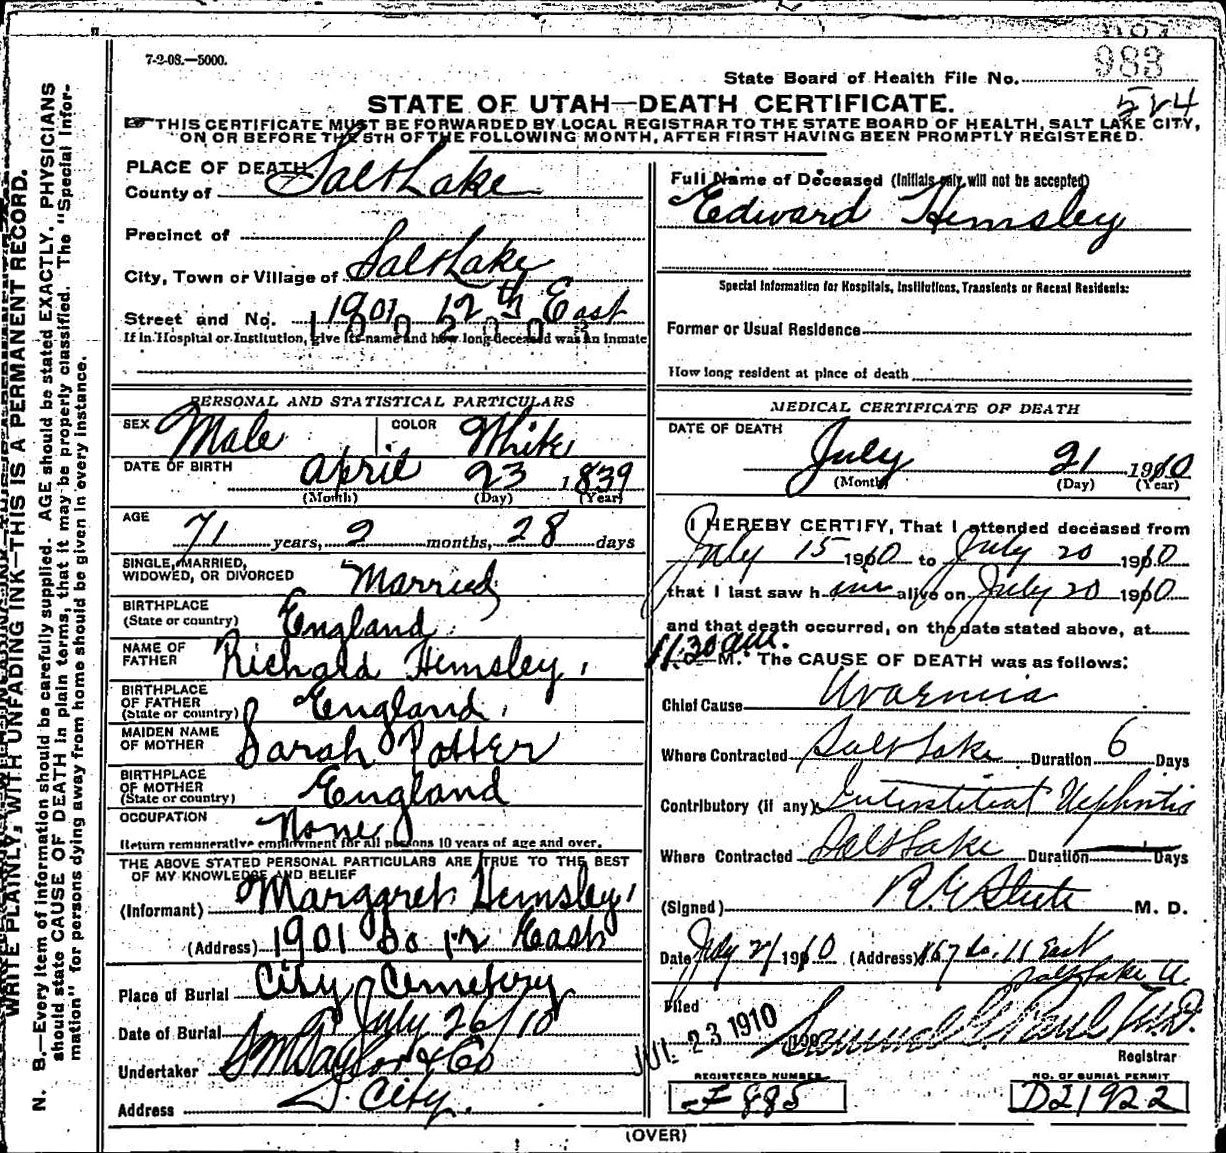 7-2-08.—5000.
983
State Board of Health File No.
524
STATE OF UTAH—DEATH CERTIFICATE.
THIS CERTIFICATE MUST BE FORWARDED BY LOCAL REGISTRAR TO THE STATE BOARD OF HEALTH, SALT LAKE CITY,
ON OR BEFORE THE 5TH OF THE FOLLOWING MONTH, AFTER FIRST HAVING BEEN PROMPTLY REGISTERED.
PLACE OF DEATH
County of Salt Lake
Precinct of
City, Town or Village of Salt Lake
Street and No. 1901 12th East
If in Hospital or Institution, give its name and how long deceased was an inmate
PERSONAL AND STATISTICAL PARTICULARS
SEX Male COLOR White
DATE OF BIRTH April 23 1839
(Month) (Day) (Year)
AGE 71 years, 2 months, 28 days
SINGLE, MARRIED,
WIDOWED, OR DIVORCED Married
BIRTHPLACE
(State or country) England
NAME OF
FATHER Richard Hemsley
BIRTHPLACE
OF FATHER
(State or country) England
MAIDEN NAME
OF MOTHER Sarah Potter
BIRTHPLACE
OF MOTHER
(State or country) England
OCCUPATION None
Return remunerative employment for all persons 10 years of age and over.
THE ABOVE STATED PERSONAL PARTICULARS ARE TRUE TO THE BEST
OF MY KNOWLEDGE AND BELIEF
(Informant) Margaret Hemsley
(Address) 1901 So 12 East
Place of Burial City Cemetery
Date of Burial July 26/10
Undertaker S M Taylor & Co
Address City.
Full Name of Deceased (Initials only, will not be accepted)
Edward Hemsley
Special Information for Hospitals, Institutions, Transients or Recent Residents:
Former or Usual Residence
How long resident at place of death
MEDICAL CERTIFICATE OF DEATH
DATE OF DEATH
July 21 1910
(Month) (Day) (Year)
I HEREBY CERTIFY, That I attended deceased from
July 15 1910 to July 20 1910
that I last saw him alive on July 20 1910
and that death occurred, on the date stated above, at
11.30 am. M. The CAUSE OF DEATH was as follows:
Chief Cause Uraemia
Where Contracted Salt Lake Duration 6 Days
Contributory (if any) Interstitial Nephritis
Where Contracted Salt Lake Duration Days
(Signed) M. D.
Date July 21 1910 (Address) 167 So. 11 East
Salt Lake U.
Filed JUL 23 1910
Registrar
REGISTERED NUMBER
F 885
NO. OF BURIAL PERMIT
D21922
(OVER)
WRITE PLAINLY, WITH UNFADING INK—THIS IS A PERMANENT RECORD.
N. B.—Every item of information should be carefully supplied. AGE should be stated EXACTLY. PHYSICIANS
should state CAUSE OF DEATH in plain terms, that it may be properly classified. The "Special Infor-
mation" for persons dying away from home should be given in every instance.